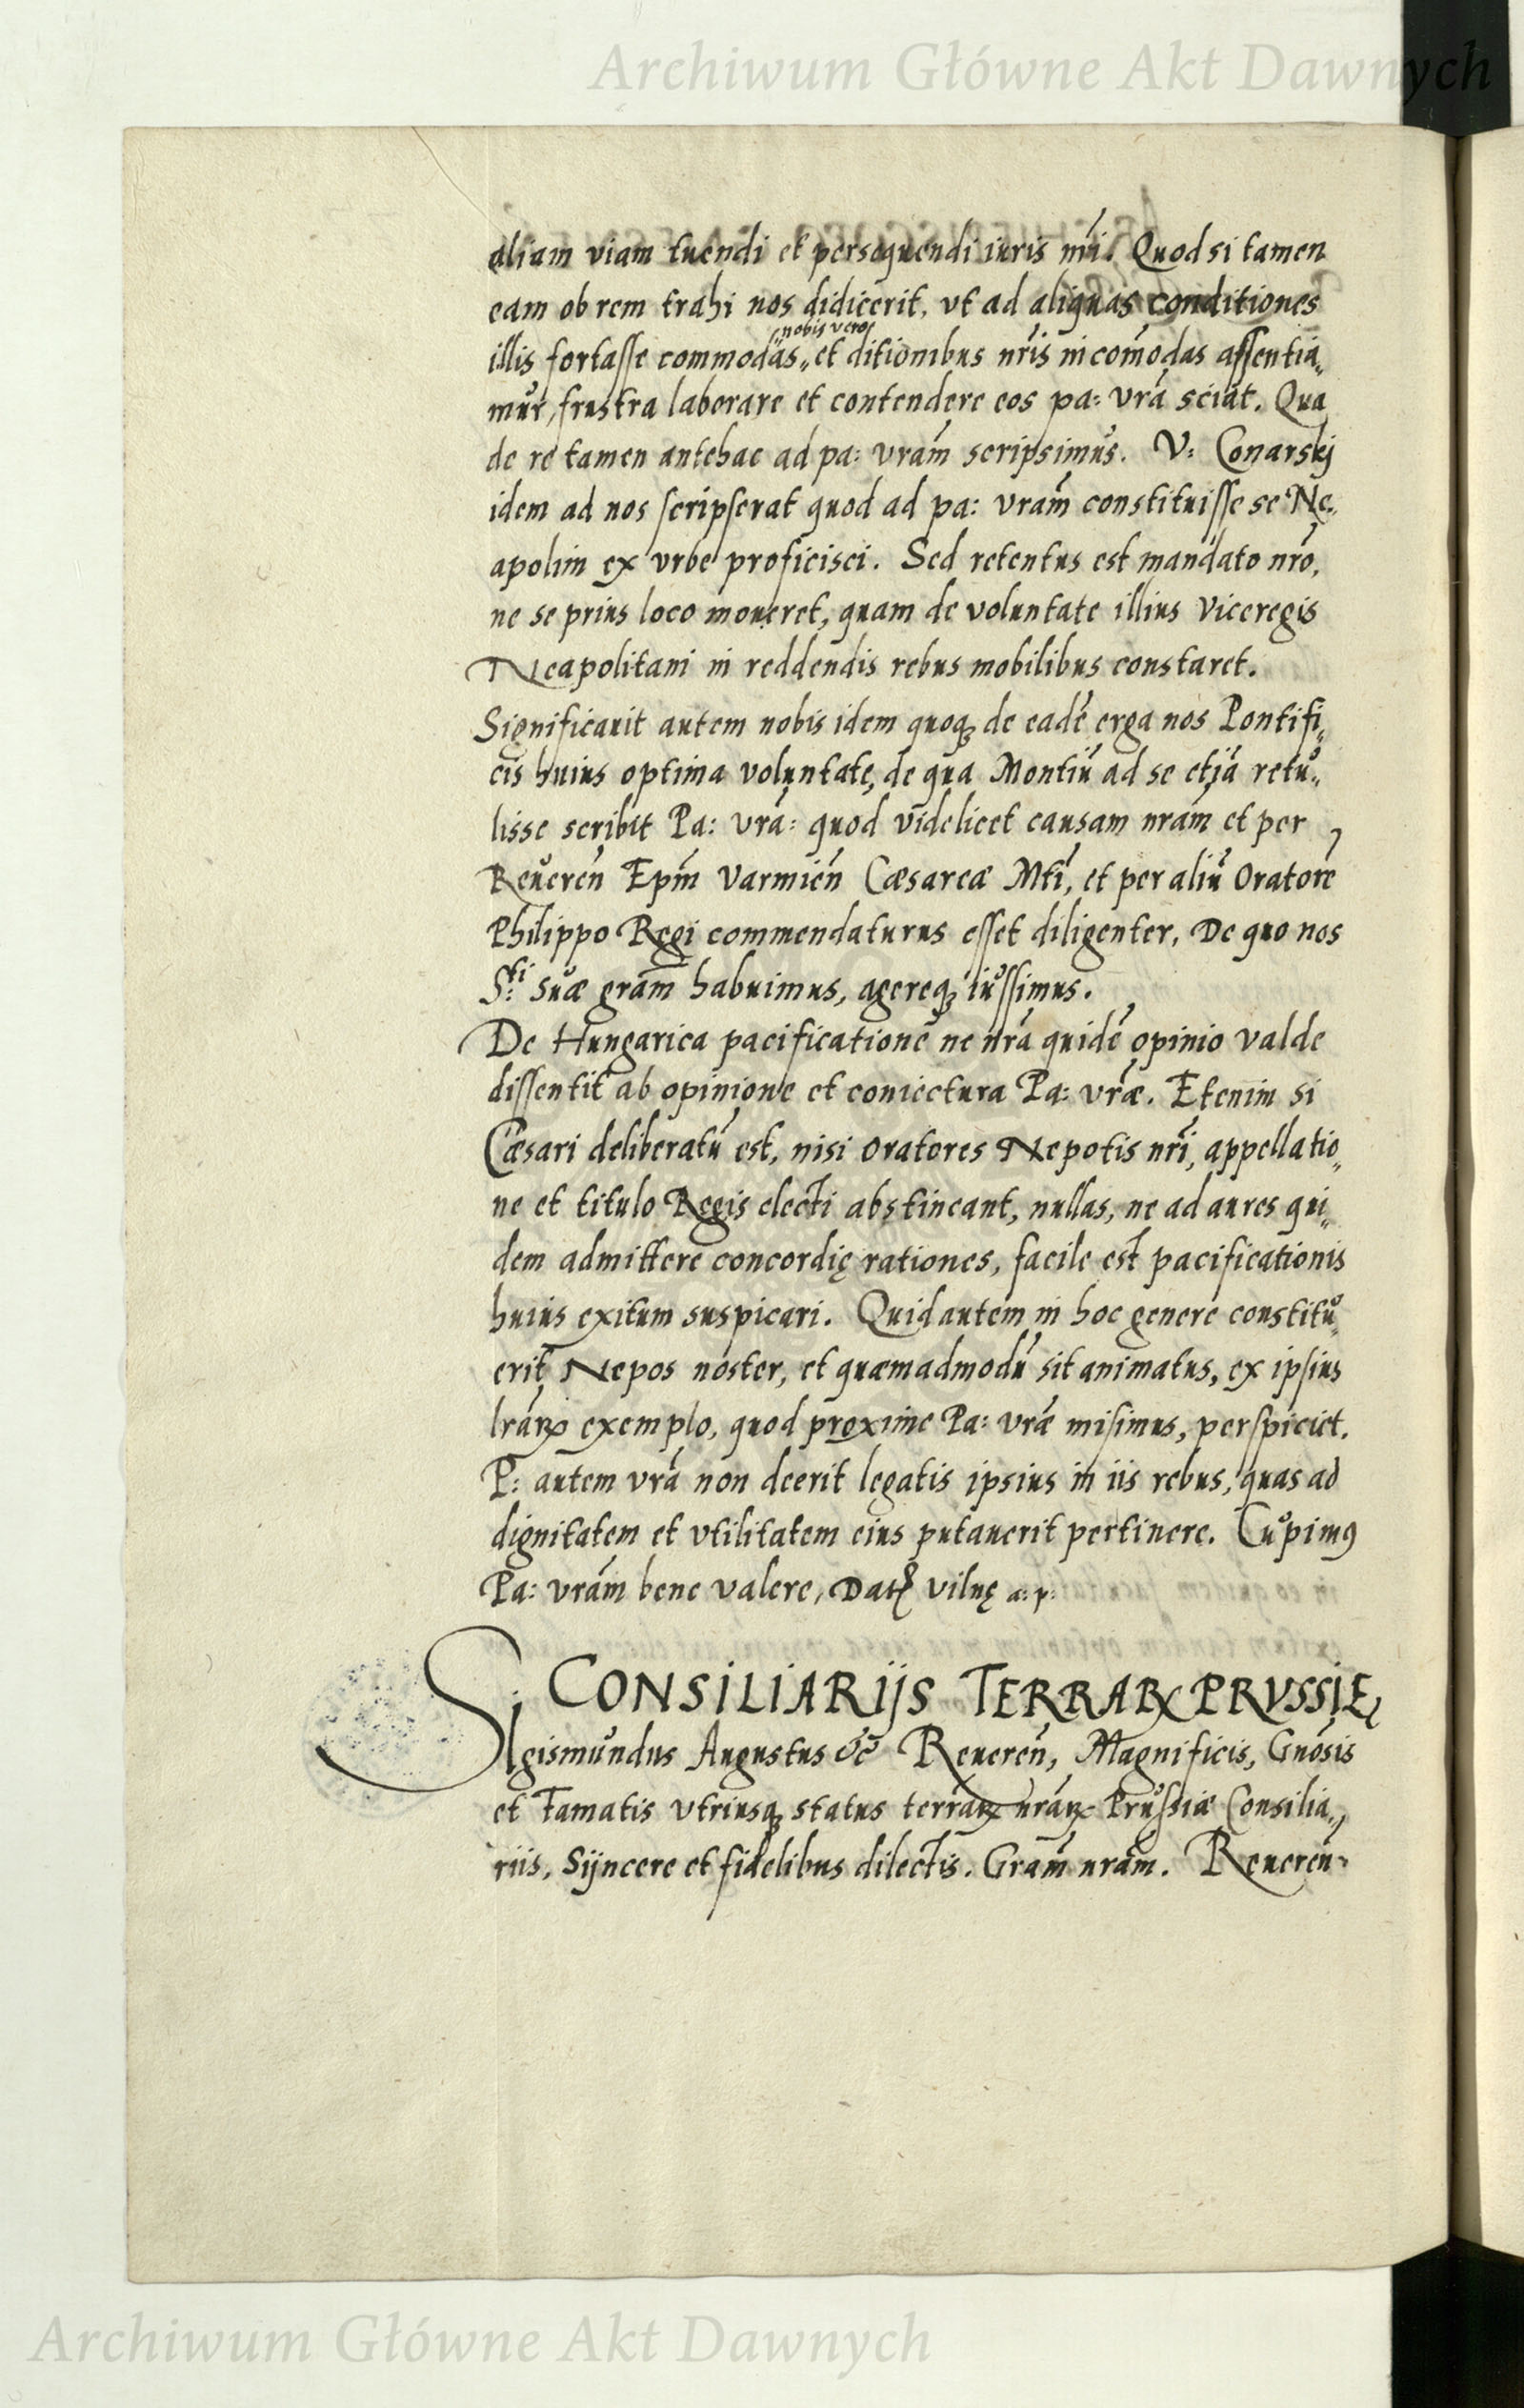 Archiwum Główne Akt Dawnych
aliam viam tuendi et persequendi iuris nri. Quod si tamen
eam ob rem trahi nos didicerit, vt ad aliquas conditiones
nobis vero
illis fortasse commodas, et ditionibus nris incomodas assentia„
mur, frustra laborare et contendere eos pa: vrã sciat. Qua
de re tamen antehac ad pa: vram scripsimus. V: Conarskj
idem ad nos scripserat quod ad pa: vram constituisse se Ne„
apolim ex vrbe proficisci. Sed retentus est mandato nro,
ne se prius loco moueret, quam de voluntate illius Viceregis
Neapolitani in reddendis rebus mobilibus constaret.
Significauit autem nobis idem quoq; de eadẽ erga nos Pontifi„
cis huius optima voluntate, de qua Montiũ ad se etiã retu„
lisse scribit Pa: vrã: quod videlicet causam nram et per
Reueren̄ Epm̄ Varmien̄ Cæsareæ Mti, et per aliũ Oratorẽ
Philippo Regi commendaturus esset diligenter, De quo nos
S:ti suæ gram̄ habuimus, agereq; iussimus.
De Hungarica pacificatione ne nrã quidẽ opinio valde
dissentit ab opinione et coniectura Pa: vræ. Etenim si
Cæsari deliberatũ est, nisi Oratores Nepotis nri, appellatio„
ne et titulo Regis electi abstineant, nullas, ne ad aures qui„
dem admittere concordię rationes, facile est pacificationis
huius exitum suspicari. Quid autem in hoc genere constitu„
erit Nepos noster, et quæmadmodũ sit animatus, ex ipsius
lrãꝝ exemplo, quod proxime Pa: vræ misimus, perspiciet.
P: autem vrã non deerit legatis ipsius in iis rebus, quas ad
dignitatem et vtilitatem eius putauerit pertinere. Cupimꝰ
Pa: vram bene valere, Datꝭ vilnę a: p:
CONSILIARIJS TERRARꝝ PRVSSIĘ
SIgismundus Augustus &c̄ Reueren̄, Magnificis, Gnosis
et Famatis vtriusq; status terrãꝝ nrãꝝ Prussiæ Consilia„
riis, Sÿncere et fidelibus dilectis. Gram̄ nram. Reueren„
Archiwum Główne Akt Dawnych